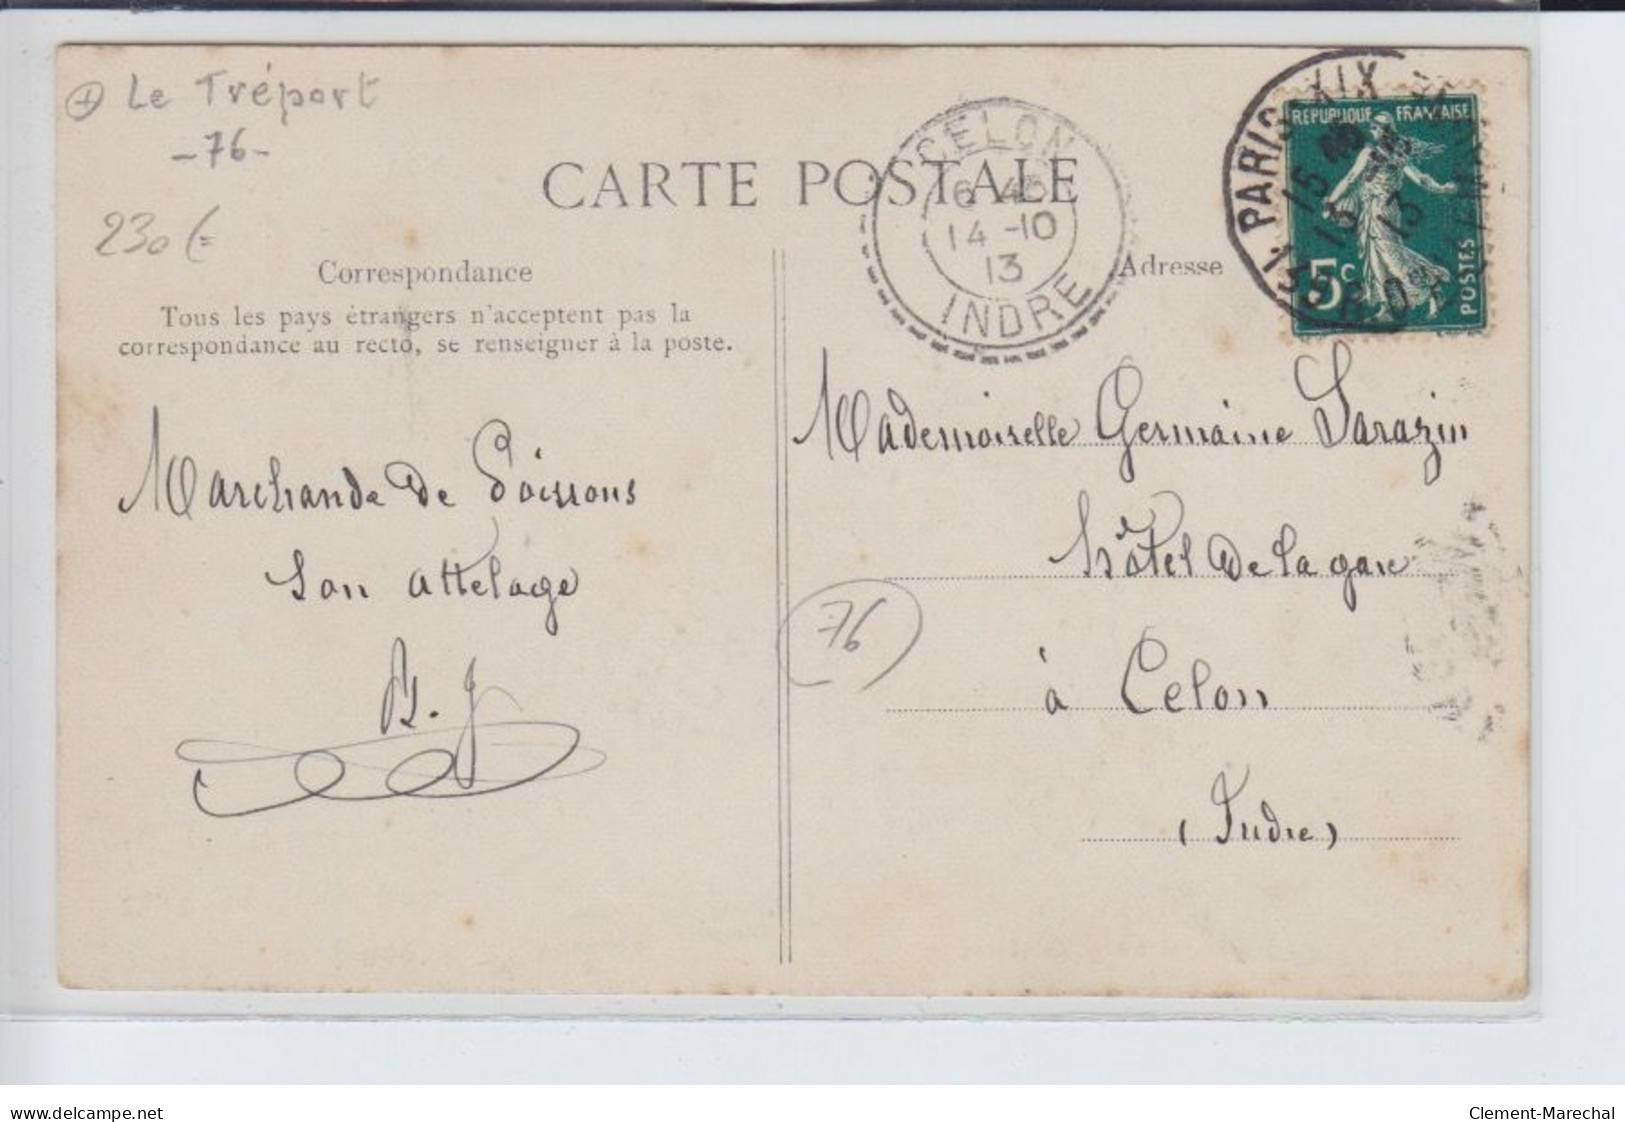 Le Tréport
-76-
230 €
CARTE POSTALE
CELON
6 45
14 -10
13
INDRE
PARIS XIX
15
13
13
REPUBLIQUE FRANÇAISE
5c
POSTES
Correspondance
Tous les pays étrangers n'acceptent pas la
correspondance au recto, se renseigner à la poste.
Adresse
Marchande de Poissons
Son attelage
B. J
Mademoiselle Germaine Sarazin
hôtel De la gare
à Celon
(Indre)
76
www.delcampe.net
Clement-Marechal